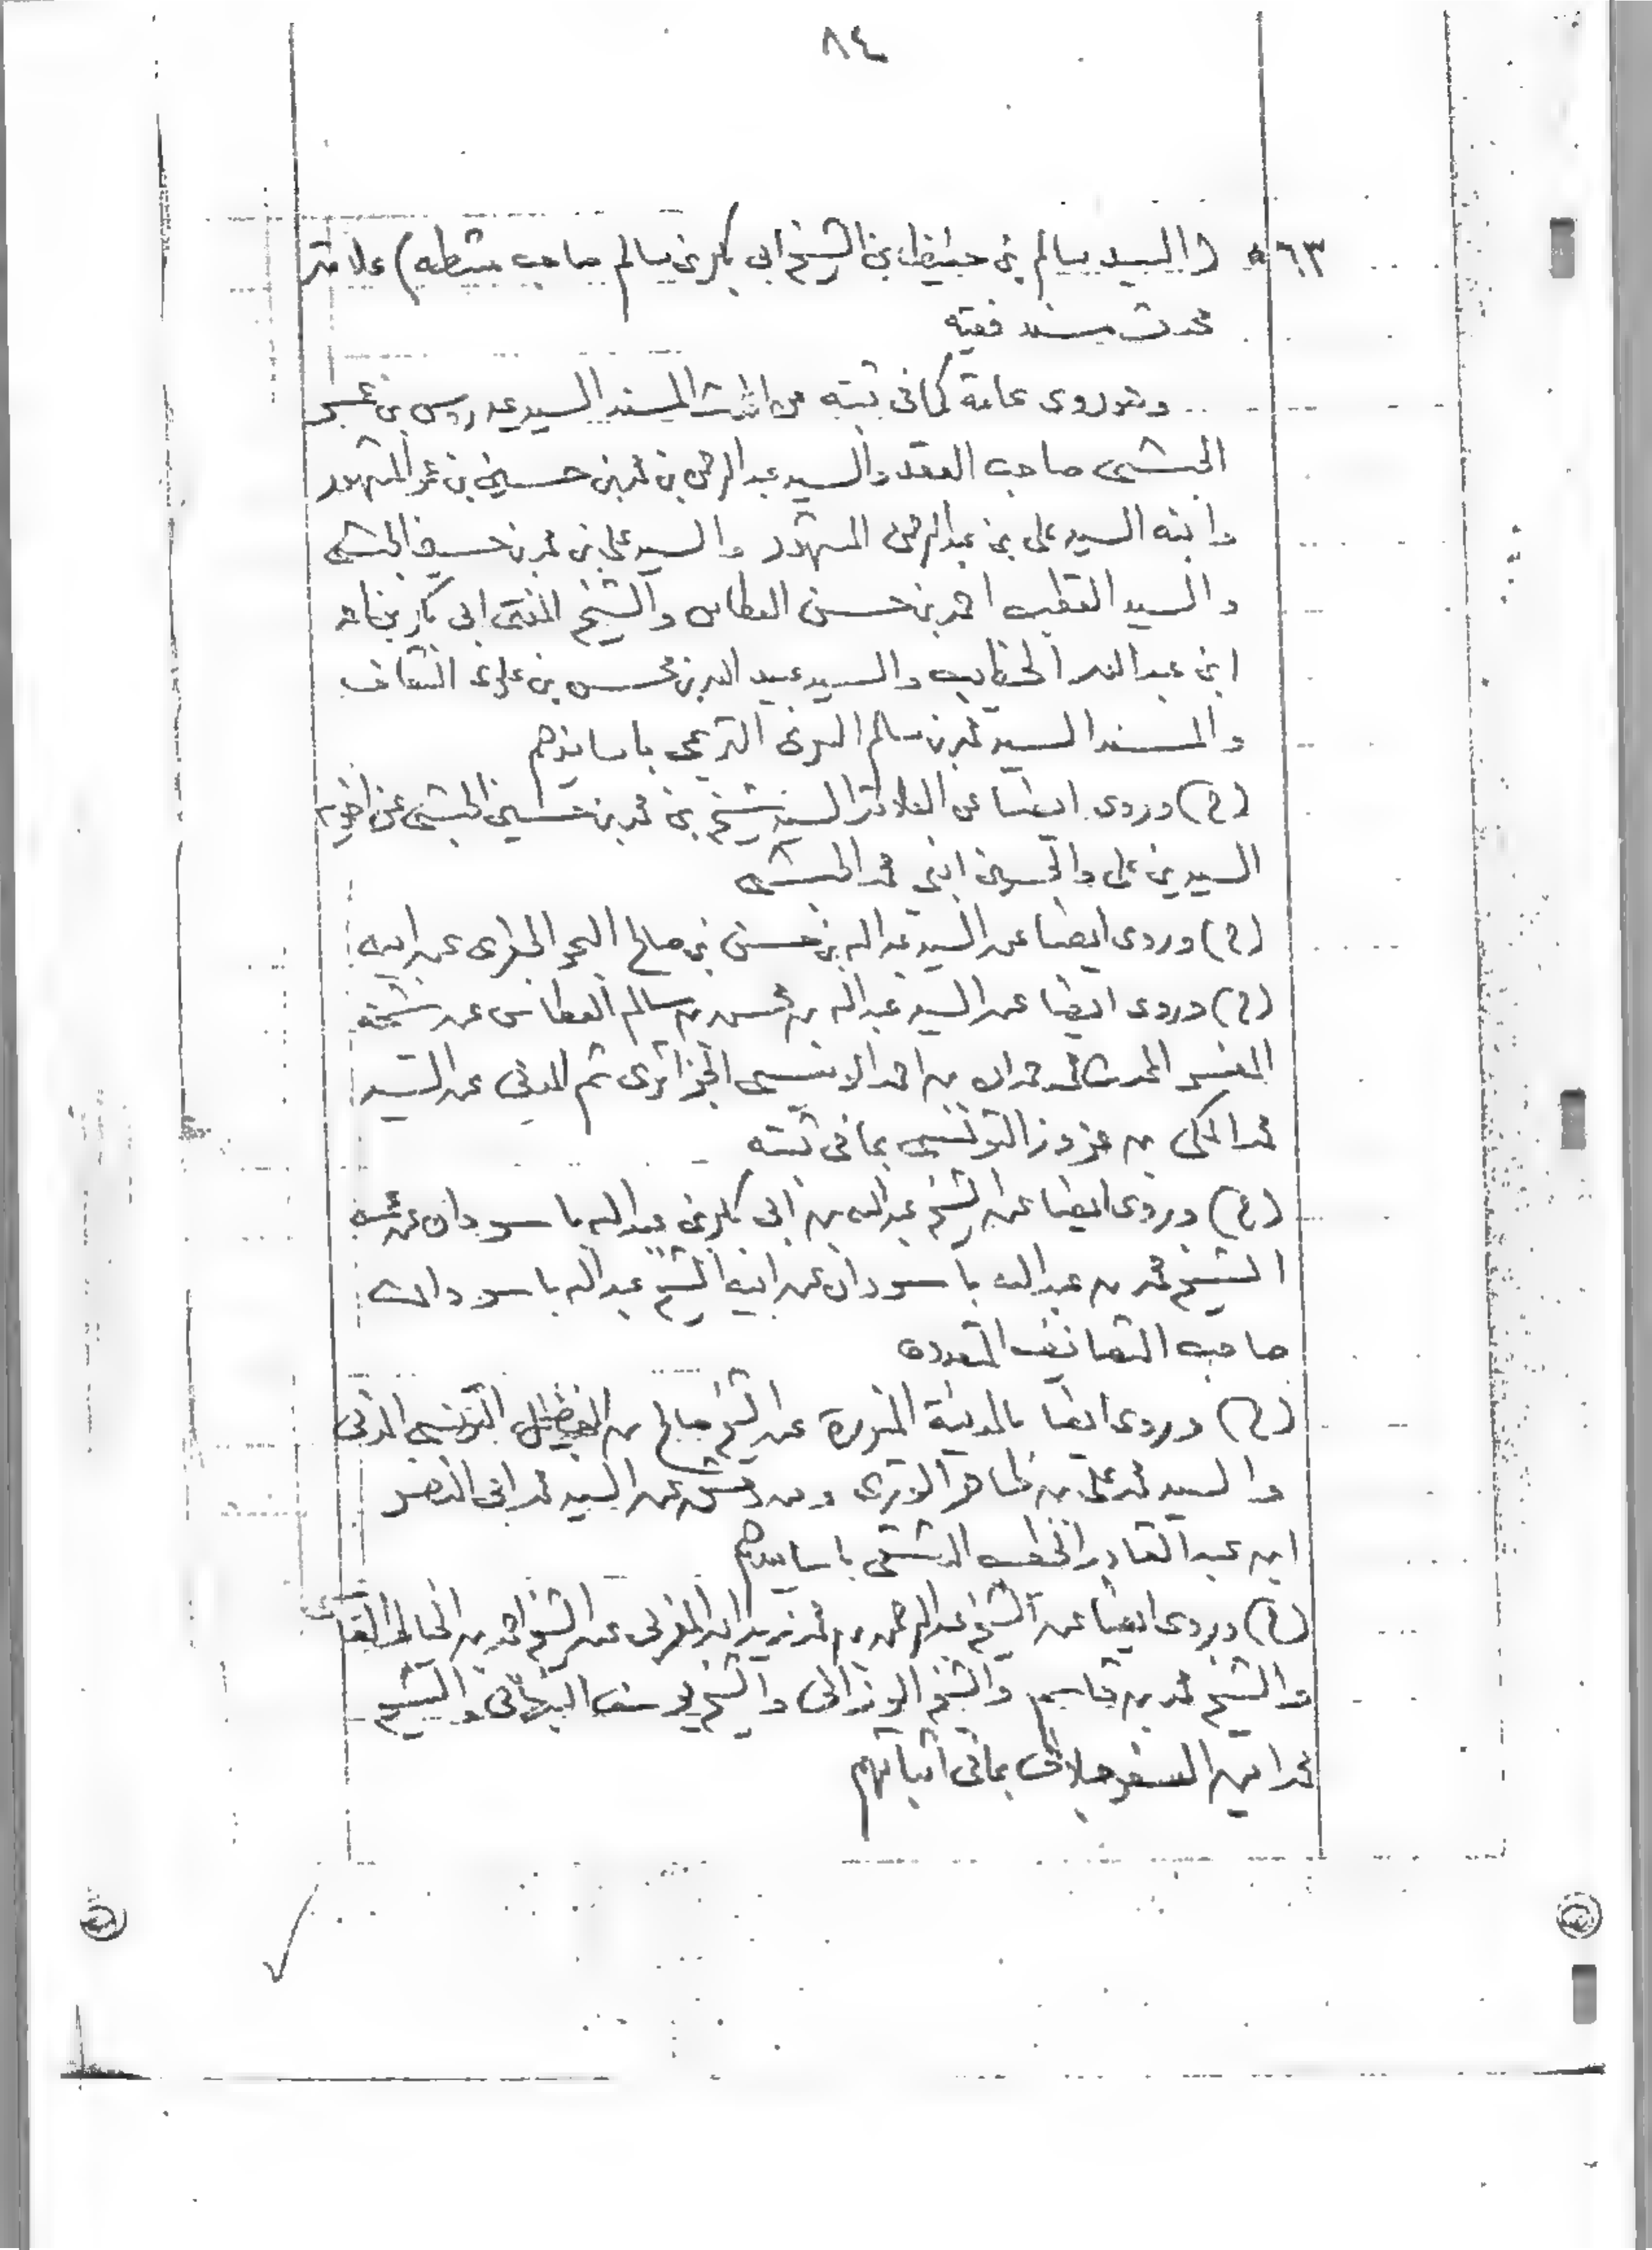 ٨٤
٦٣ * (السيد سالم بن حفيظ بن الشيخ ابي بكر بن سالم صاحب مشطه) علامة
محدث مسند فقيه
وهو روى عامة كما فى ثبته عن المسند السيد عيدروس بن عمر
الحبشي صاحب العقد والسيد عبدالرحمن بن محمد بن حسين بن عمر المشهور
وابنه السيد على بن عبدالرحمن المشهور والسيد على بن محمد بن حسين الحبشى
والسيد القطب احمد بن حسن العطاس والشيخ المفتى ابى بكر بن احمد
ابن عبدالله الخطيب والسيد عبيد الله بن محسن بن علوى السقاف
والمسند السيد محمد بن سالم السرى التريمى باسانيدهم
(ح) وروى ايضا عن العلامة السيد شيخ بن محمد بن حسين الحبشى عن اخويه
السيدين على والحسين ابنى محمد الحبشى
(ح) وروى ايضا عن السيد عبدالله بن حسن بن صالح البحر الجفرى عن ابيه
(ح) وروى ايضا عن السيد عبدالله بن محسن بن سالم العطاس عن شيخه
المفسر المحدث محمد حمدان بن احمد الونيسى الجزائرى ثم المدنى عن السيد
محمد المكى بن عزوز التونسى بما فى ثبته
(ح) وروى ايضا عن الشيخ عبدالله بن ابى بكر بن عبدالله باسودان عن عمه
الشيخ محمد بن عبدالله باسودان عن ابيه الشيخ عبدالله باسودان
صاحب التصانيف المتعددة
(ح) وروى ايضا بالمدينة المنورة عن الشيخ صالح بن الفضيل التونسى المدنى
والسيد محمد على بن ظاهر الوترى ومن دمشق عن السيد محمد ابى النصر
ابن عبدالقادر الخطيب الدمشقى باسانيدهم
(ح) وروى ايضا عن الشيخ عبدالرحمن بن محمد زيدان المغربى عن الشيخ احمد بن الخياط الفاسى
والشيخ محمد بن قاسم والشيخ الوزانى والشيخ يوسف النبهانى والشيخ
محمد امين السفرجلانى بما فى اثباتهم